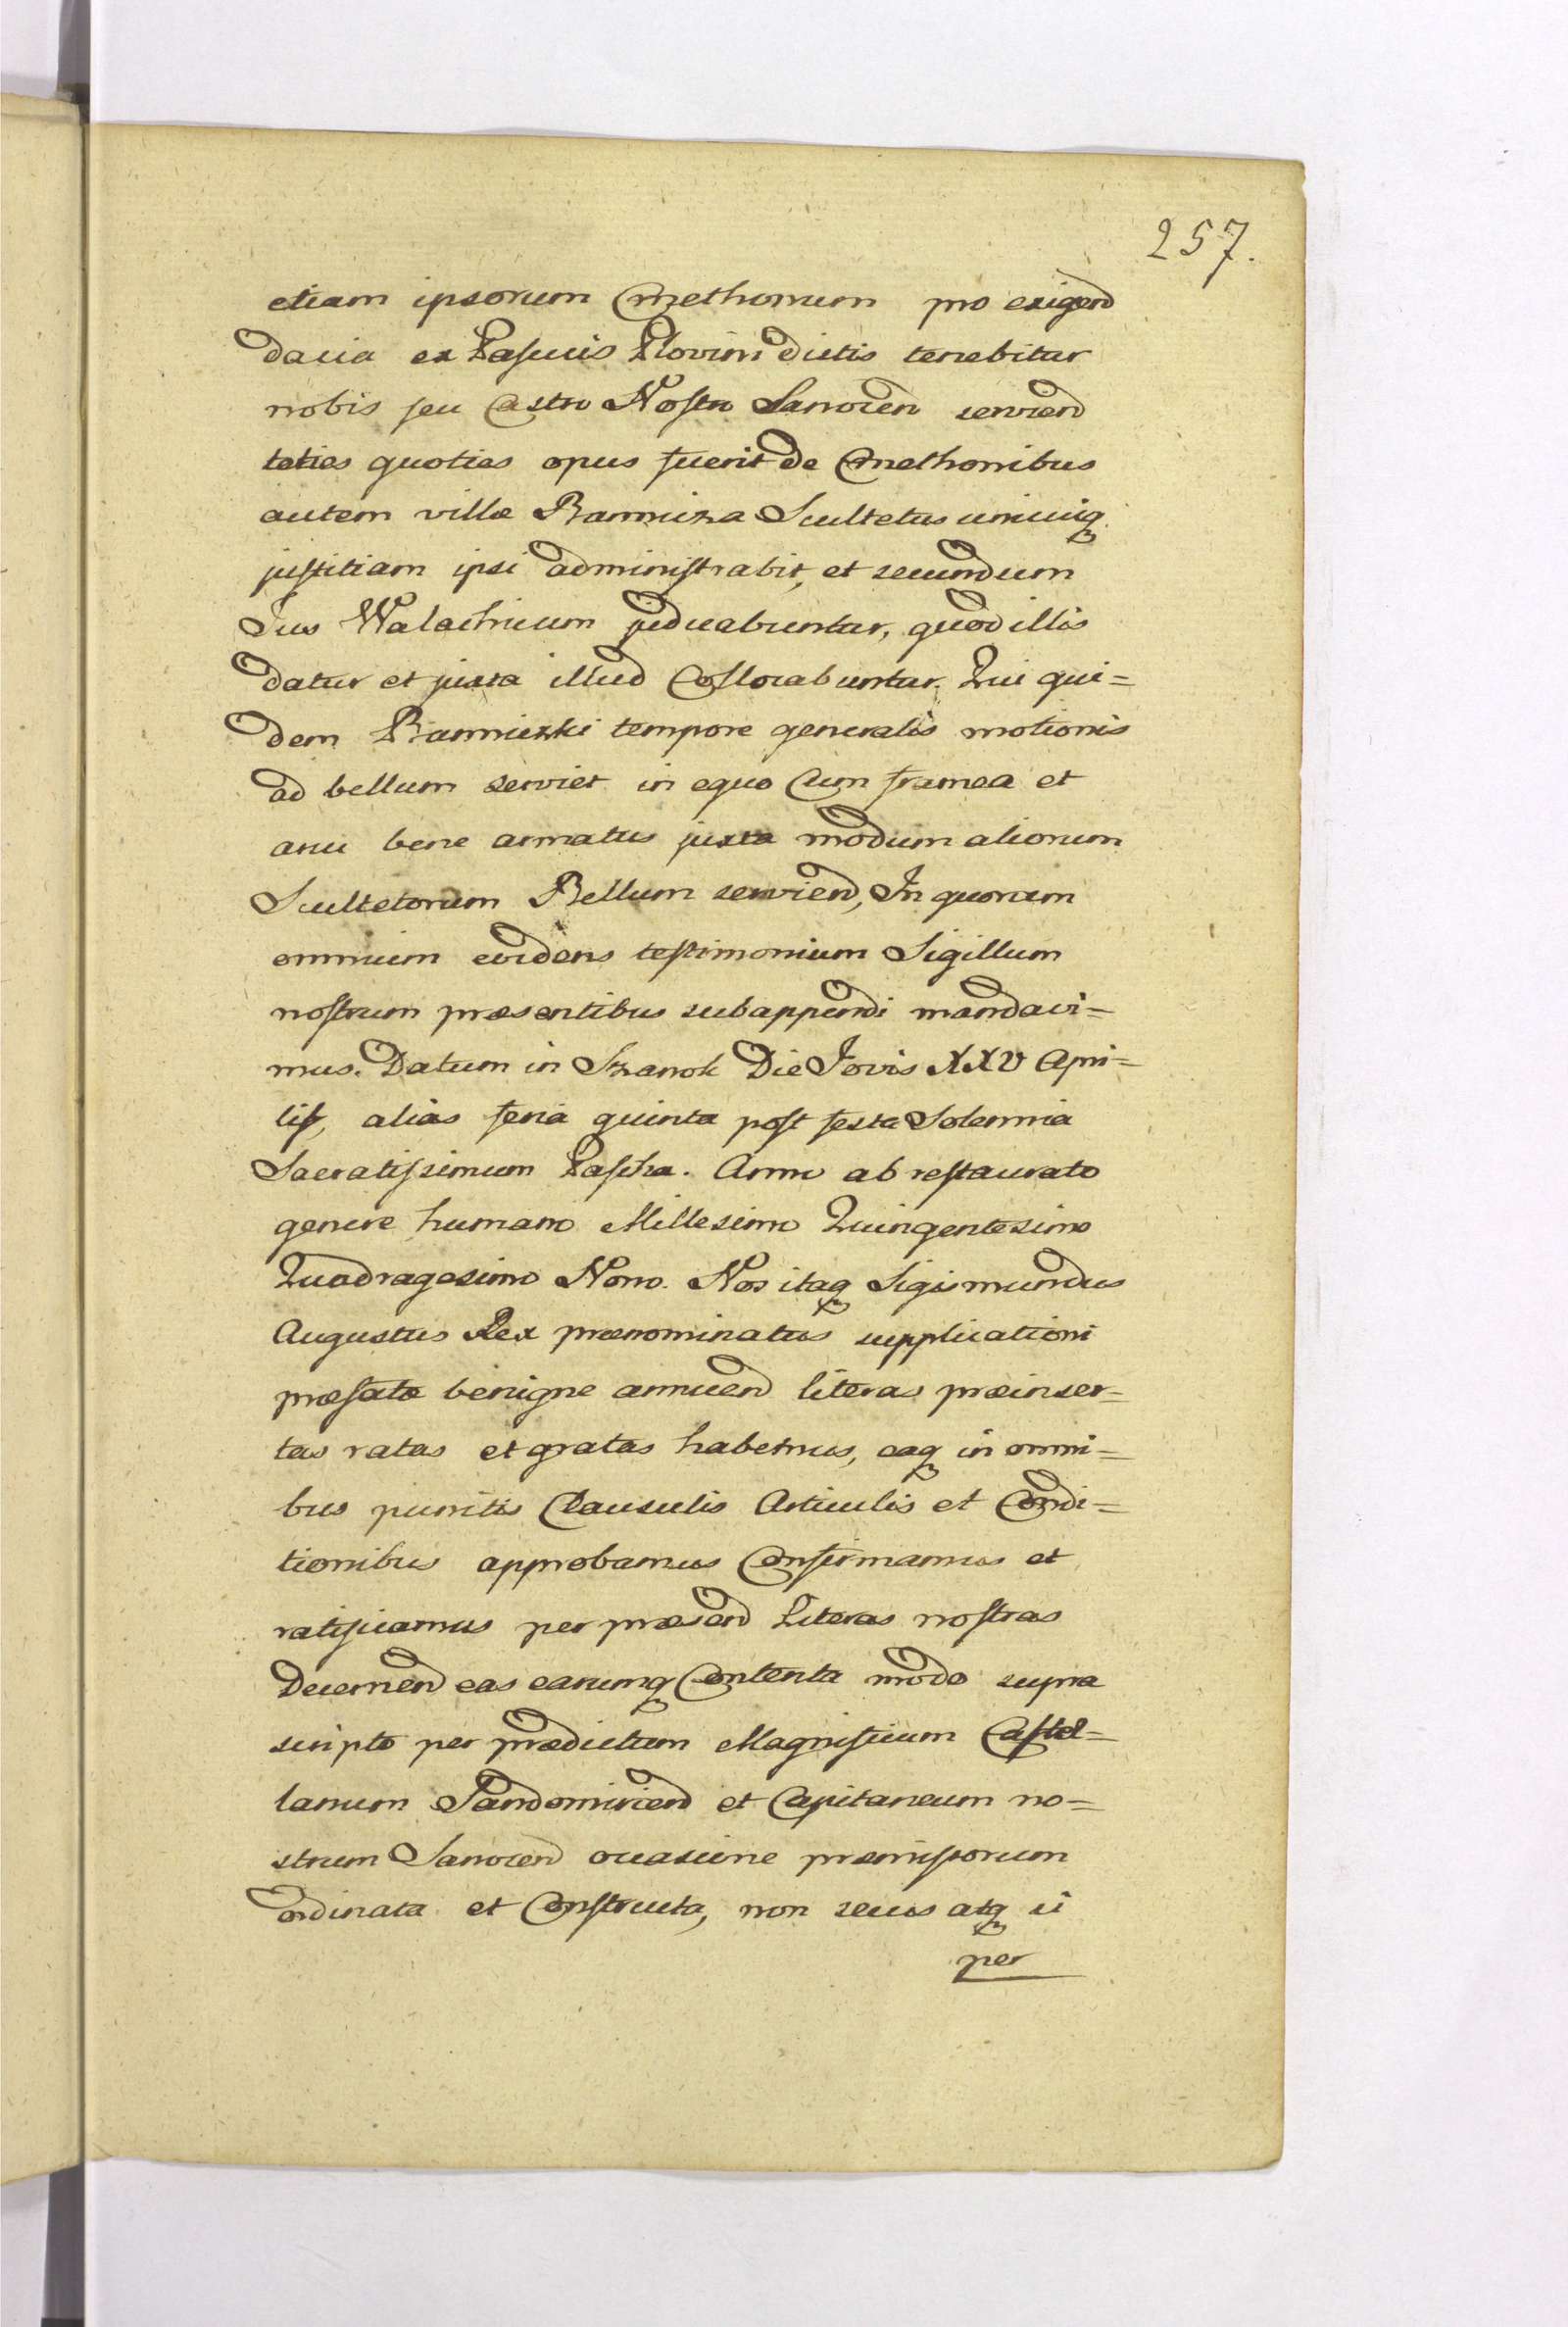 257.
etiam ipsorum Cmethonum pro exigend
dacia ex Pascuis Plovini dictis tenebitur
nobis seu Castro Nostro Sanocen serviend
toties quoties opus fuerit de Cmethonibus
autem villæ Bannicza Scultetus unicuiq
justitiam ipsi administrabit, et secundum
Jus Walachicum judicabuntur, quod illis
datur et juxta illud Collocabuntur. Qui qui=
dem Banniczki tempore generalis motionis
ad bellum serviet in equo Cum framea et
arcu bene armatus juxta modum aliorum
Scultetorum Bellum serviend, In quorum
omnium evidens testimonium Sigillum
nostrum præsentibus subappendi mandavi=
mus. Datum in Szanok Die Jovis XXV Apri=
lis, alias feria quinta post festa Solennia
Sacratissimum Pascha. Anno ab restaurato
genere humano Millesimo Quingentesimo
Quadragesimo Nono. Nos itaq Sigismundus
Augustus Rex prænominatus supplicationi
præfatæ benigne annuend literas præinser=
tas ratas et gratas habemus, eaq in omni=
bus punctis Clausulis Articulis et Condi=
tionibus approbamus Confirmamus et
ratificamus per præsend Literas nostras
Decernend eas earumq Contenta modo supra
scripto per prædictum Magnificum Castel=
lanum Sandomiriend et Capitaneum no=
strum Sanocend occasione præmissorum
ordinata et Constructa, non secus atq si
per